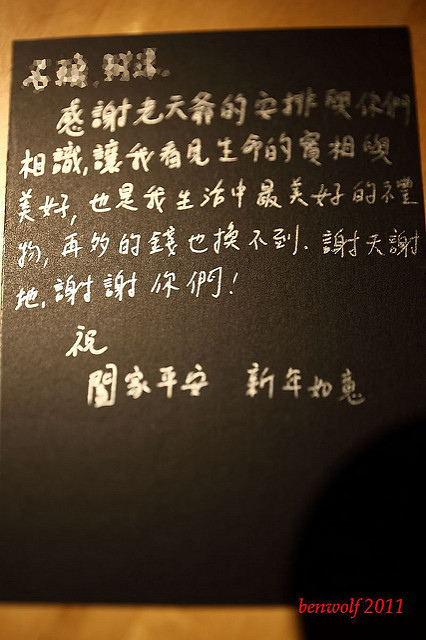 感謝老天爺的安排與你們
相識,讓我看見生命的實相與
美好,也是我生活中最美好的禮
物,再多的錢也換不到.謝天謝
地,謝謝你們!
祝
闔家平安 新年如意
benwolf 2011